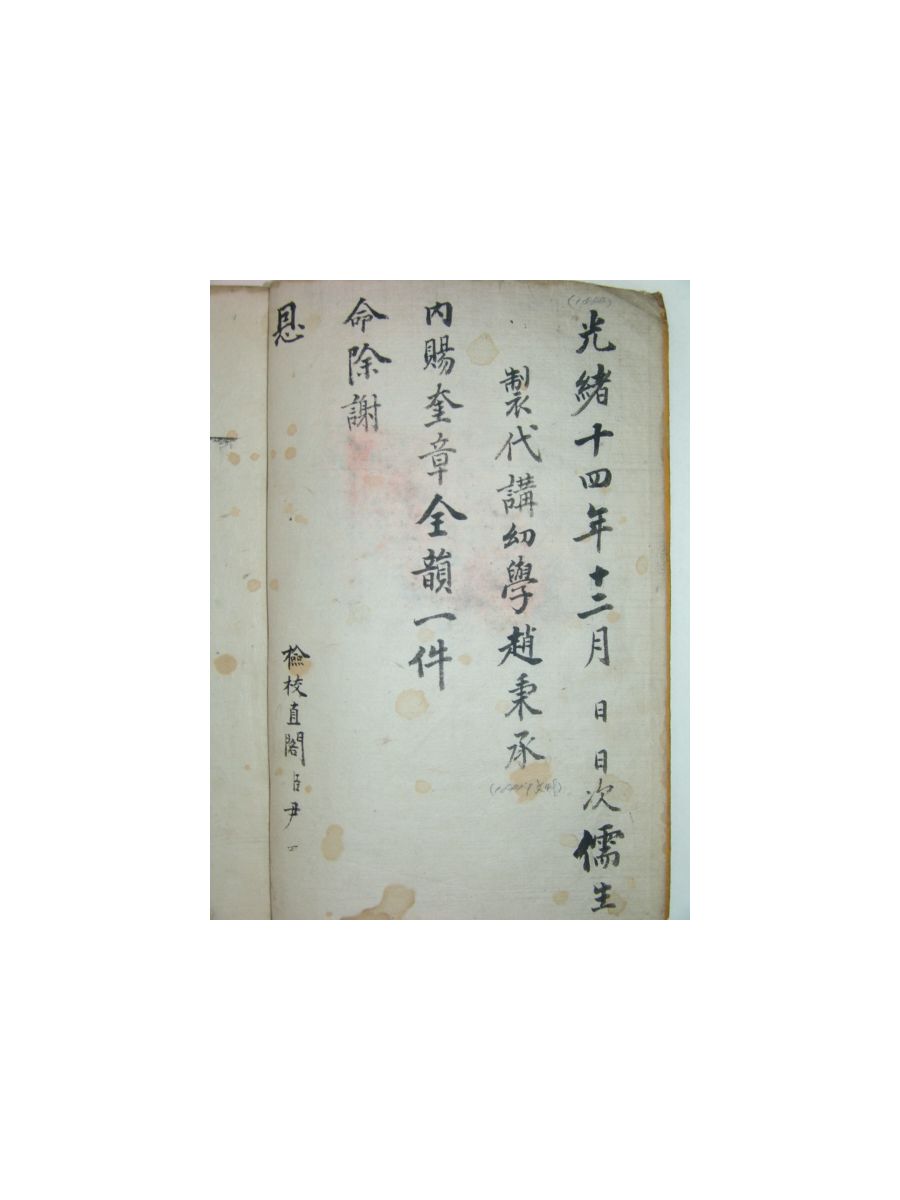 光緒十四年十二月 日 日次儒生
製代講幼學趙秉承
內賜奎章全韻一件
命除謝
恩
檢校直閣臣尹